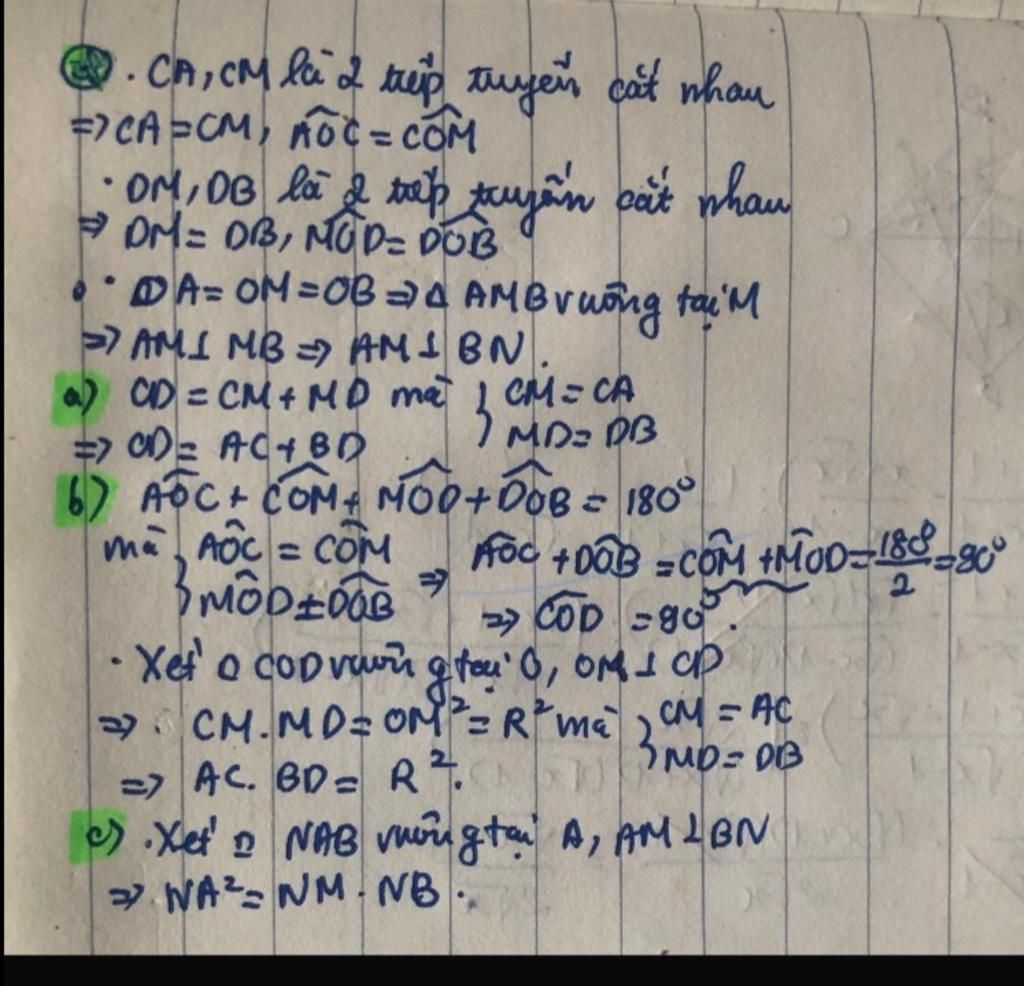 . CA, CM là 2 tiếp tuyến cắt nhau
=> CA = CM, AÔC = CÔM
· DM, DB là 2 tiếp tuyến cắt nhau
=> DM = DB, MÔD = DÔB
· OA = OM = OB => Δ AMB vuông tại M
=> AM ⊥ MB => AM ⊥ BN.
a) CD = CM + MD mà } CM = CA
=> CD = AC + BD } MD = DB
b) AÔC + CÔM + MÔD + DÔB = 180°
mà } AÔC = CÔM => AÔC + DÔB = CÔM + MÔD = 180°/2 = 90°
} MÔD = DÔB => CÔD = 90°.
· Xét Δ COD vuông tại O, OM ⊥ CD
=> CM . MD = OM² = R² mà } CM = AC
=> AC. BD = R². } MD = DB
c) . Xét Δ NAB vuông tại A, AM ⊥ BN
=> NA² = NM . NB .